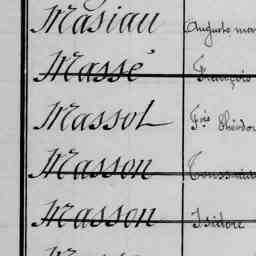 Masiau Auguste
Massé François
Massot Fçis Théodor
Masson Toussaint
Masson Isidore